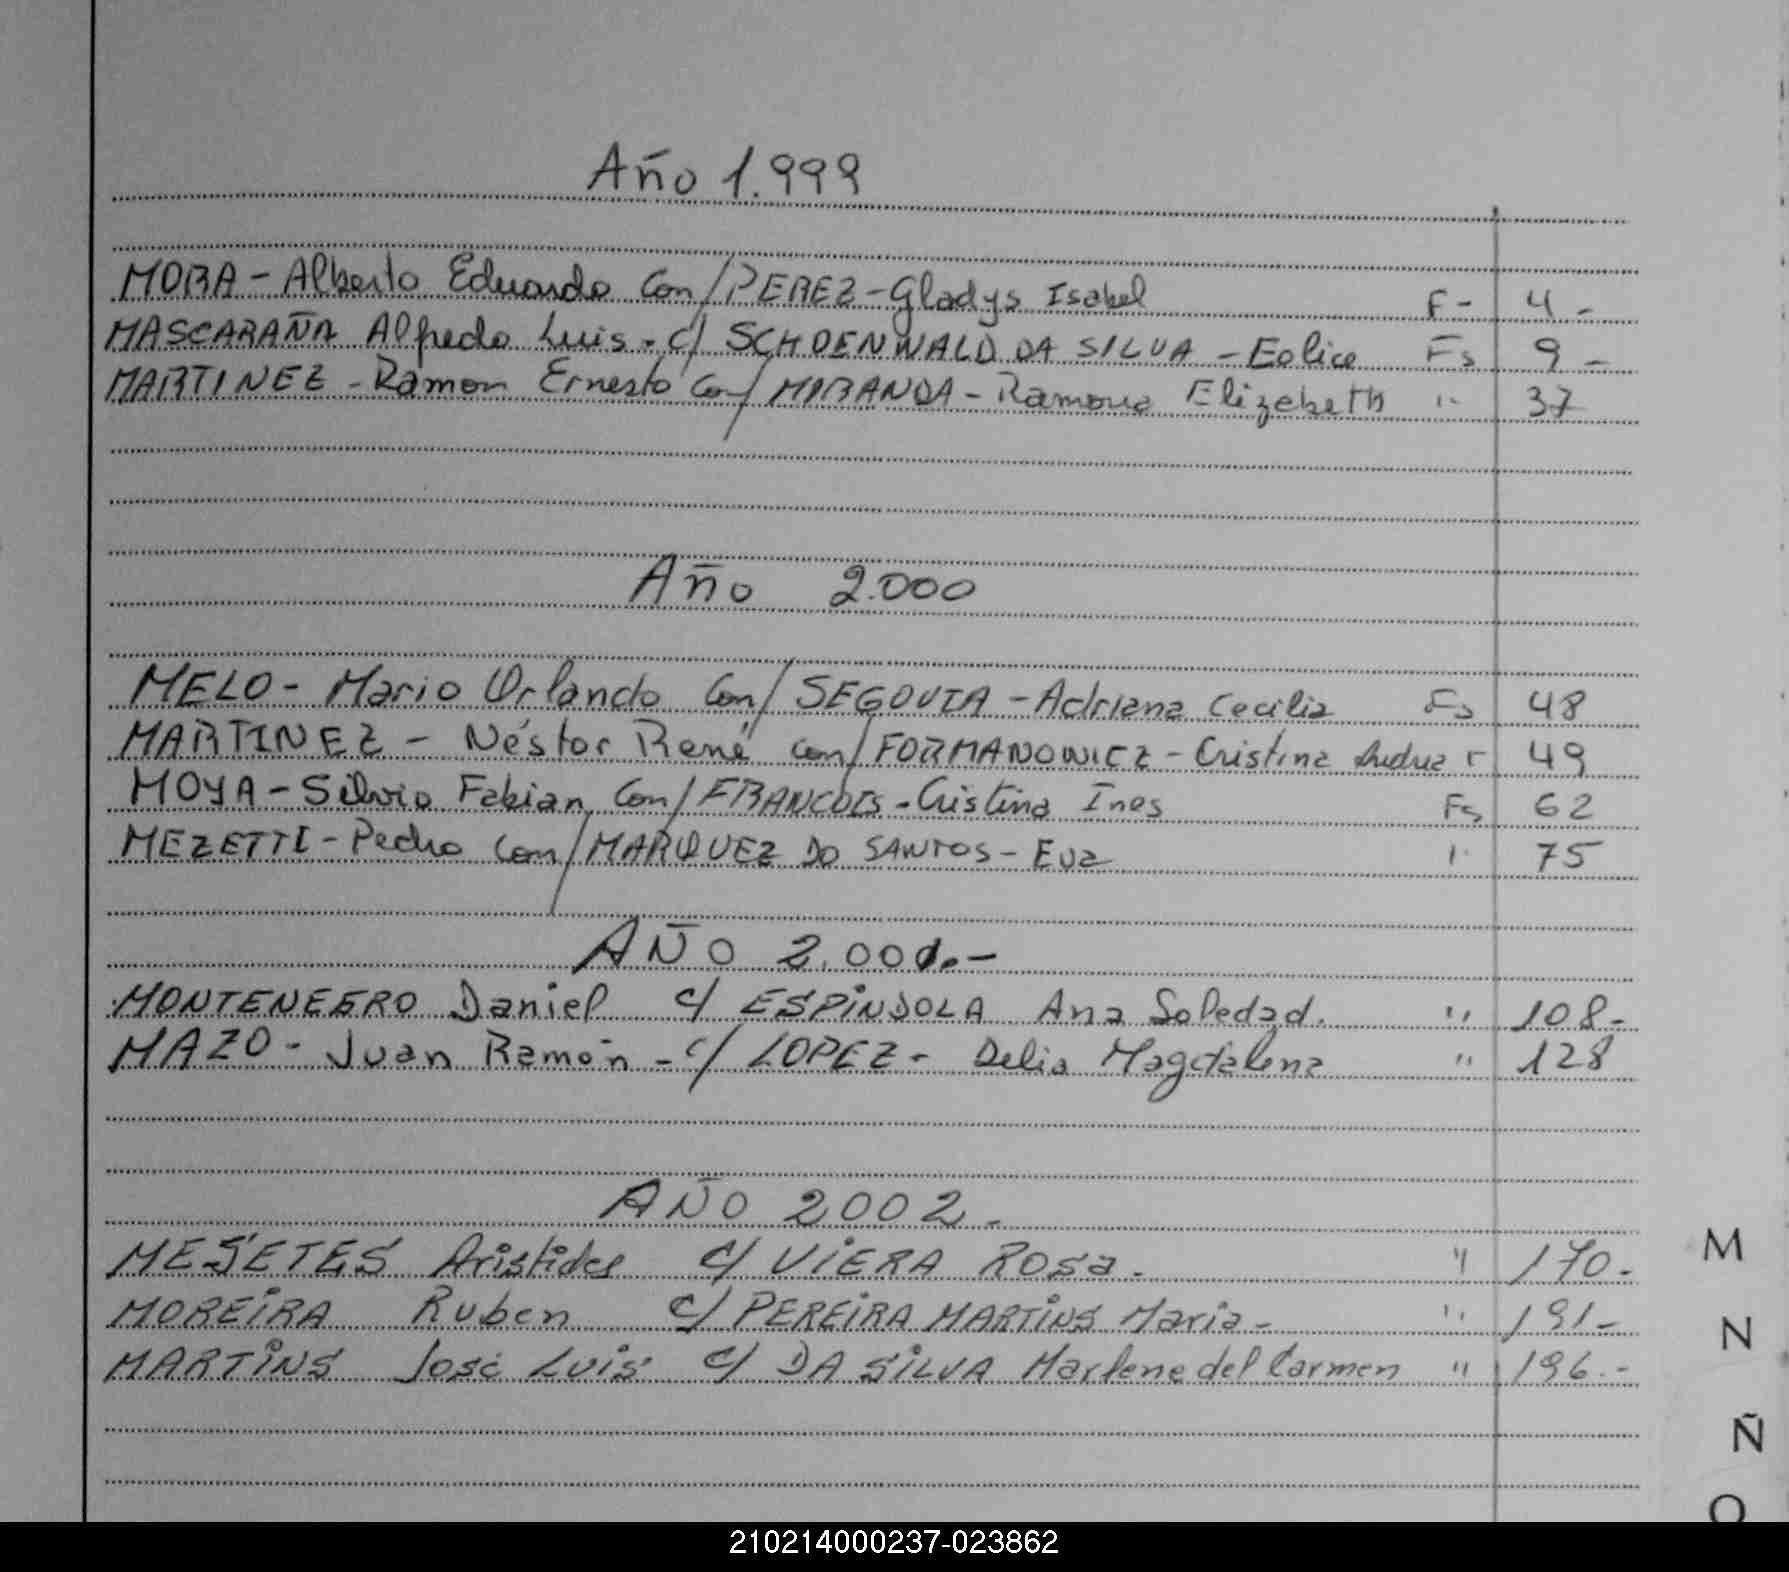 Año 1.999
MORA - Alberto Eduardo Con/ PEREZ - Gladys Isabel F - 4 -
MASCARAÑA Alfredo Luis - c/ SCHOENWALD DA SILVA - Eolice Fs 9 -
MARTINEZ - Ramon Ernesto Con/ MIRANDA - Ramona Elizabeth " 37
Año 2.000
MELO - Mario Orlando Con/ SEGOVIA - Adriana Cecilia Fs 48
MARTINEZ - Néstor René con/ FORMANOWICZ - Cristina 49
MOYA - Silvio Fabian Con/ FRANCOIS - Cristina Ines Fs 62
MEZETTI - Pedro Con/ MARQUEZ DO SANTOS - Eva " 75
AÑO 2.001.-
MONTENEGRO Daniel c/ ESPINDOLA Ana Soledad. " 108-
MAZO - Juan Ramón - c/ LOPEZ - Delia Magdalena " 128
AÑO 2002.
MESETES Aristides c/ VIERA ROSA. " 170.
MOREIRA Ruben c/ PEREIRA MARTINS Maria - " 191-
MARTINS José Luis c/ DA SILVA Marlene del Carmen " 196.-
M
N
Ñ
O
210214000237-023862